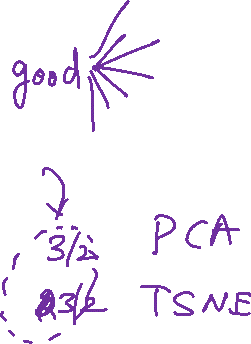 good
3/2 PCA
3/2 TSNE